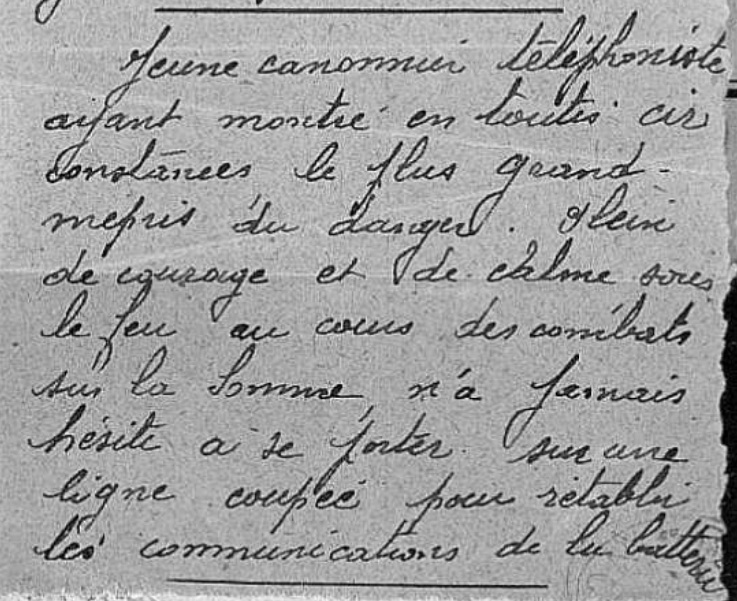 Jeune canonnier téléphoniste
ayant montré en toutes cir
constances le plus grand-
mepris du danger. Plein
de courage et de calme sous
le feu au cours des combats
sur la Somme, n'a Jamais
hésité a se porter sur une
ligne coupée pour rétablir
les communications de la batterie